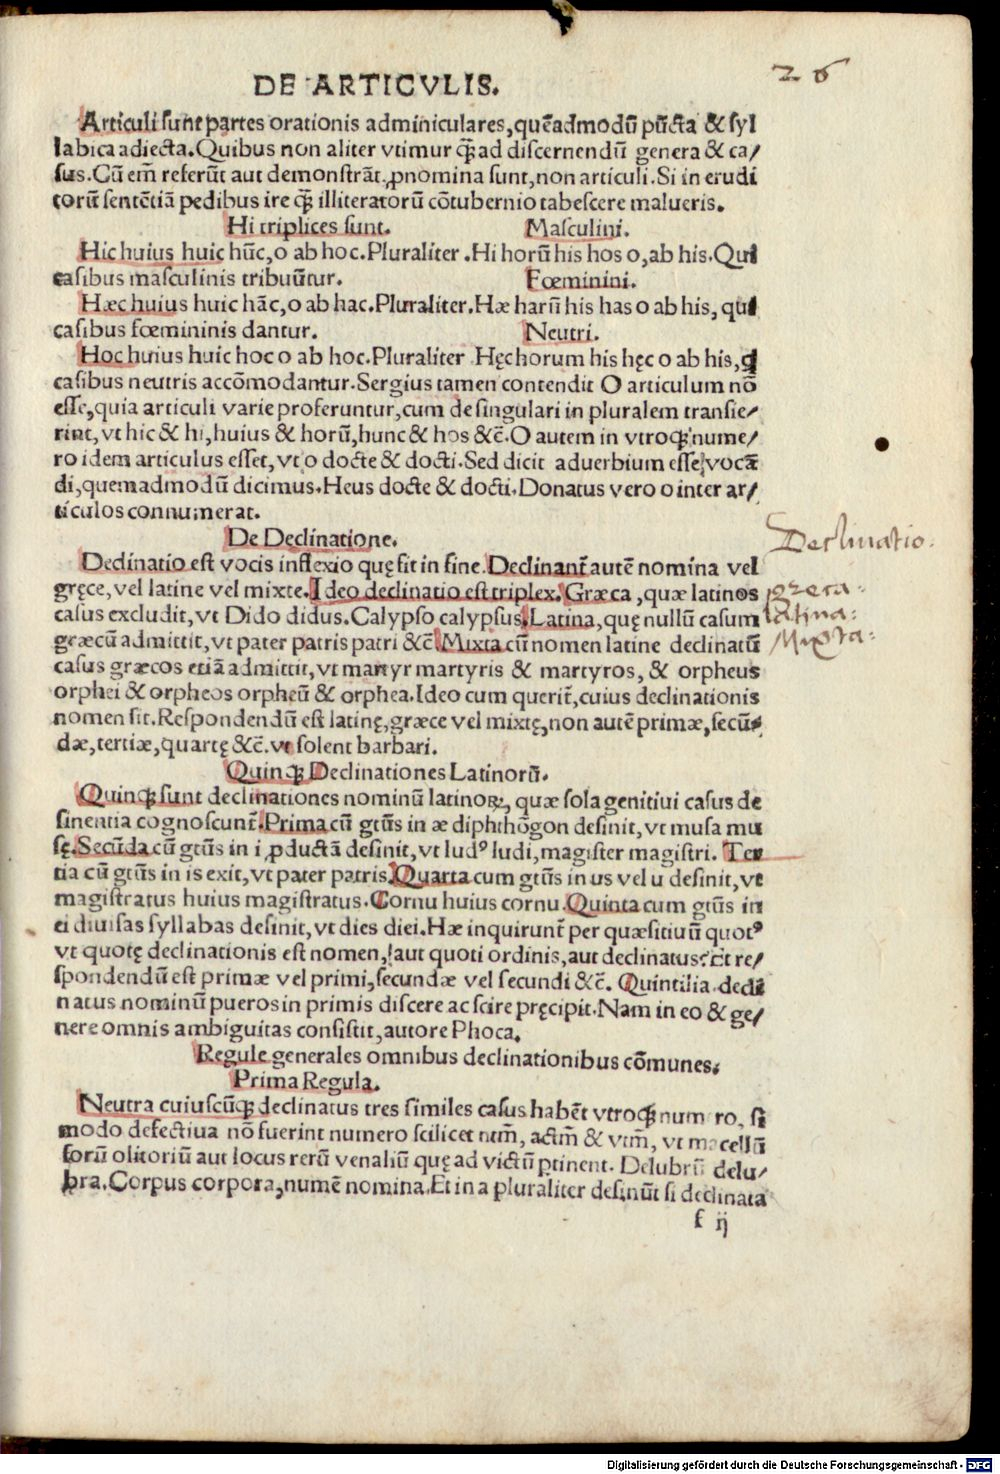 26
DE ARTICVLIS.
Articuli ſunt partes orationis adminiculares, quẽadmodũ pũcta & ſyl
labica adiecta. Quibus non aliter vtimur q̃ ad diſcernendũ genera & ca/
ſus. Cũ em̃ referũt aut demonſtrãt, ꝓnomina ſunt, non articuli. Si in erudi
torũ ſentẽtiã pedibus ire q̃ illiteratorũ cõtubernio tabeſcere malueris.
Hi triplices ſunt. Maſculini.
Hic huius huic hũc, o ab hoc. Pluraliter. Hi horũ his hos o, ab his. Qui
caſibus maſculinis tribuũtur. Fœminini.
Hæc huius huic hãc, o ab hac. Pluraliter. Hæ harũ his has o ab his, qui
caſibus fœmininis dantur. Neutri.
Hoc huius huic hoc o ab hoc. Pluraliter Hęc horum his hęc o ab his, q̃
caſibus neutris accõmodantur. Sergius tamen contendit O articulum nõ
eſſe, quia articuli varie proferuntur, cum de ſingulari in pluralem tranſie/
rint, vt hic & hi, huius & horũ, hunc & hos &c̃. O autem in vtroqꝫ nume/
ro idem articulus eſſet, vt o docte & docti. Sed dicit aduerbium eſſe vocã
di, quemadmodũ dicimus. Heus docte & docti. Donatus vero o inter ar/
ticulos connumerat.
De Declinatione.
Declinatio eſt vocis inflexio quę fit in fine. Declinant᷑ autẽ nomina vel
gręce, vel latine vel mixte. Ideo declinatio eſt triplex. Græca, quæ latinos
caſus excludit, vt Dido didus. Calypſo calypſus. Latina, quę nullũ caſum
græcũ admittit, vt pater patris patri &c̃. Mixta cũ nomen latine declinatũ
caſus græcos etiã admittit, vt martyr martyris & martyros, & orpheus
orphei & orpheos orpheũ & orphea. Ideo cum querit᷑, cuius declinationis
nomen ſit. Reſpondendũ eſt latinę, græce vel mixtę, non autẽ primæ, ſecũ/
dæ, tertiæ, quartę &c̃. vt ſolent barbari.
Declinatio.
greca.
latina.
Mixta.
Quinqꝫ Declinationes Latinorũ.
Quinqꝫ ſunt declinationes nominũ latinoꝝ, quæ ſola genitiui caſus de
ſinentia cognoſcunt᷑. Prima cũ gt̃us in æ diphthõgon deſinit, vt muſa mu
ſę. Secũda cũ gt̃us in i ꝓductã deſinit, vt ludꝰ ludi, magiſter magiſtri. Ter
tia cũ gt̃us in is exit, vt pater patris. Quarta cum gt̃us in us vel u deſinit, vt
magiſtratus huius magiſtratus. Cornu huius cornu. Quinta cum gt̃us in
ei diuiſas ſyllabas deſinit, vt dies diei. Hæ inquirunt᷑ per quæſitiuũ quotꝰ
vt quotę declinationis eſt nomen, aut quoti ordinis, aut declinatus: Et re/
ſpondendũ eſt primæ vel primi, ſecundæ vel ſecundi &c̃. Quintilia. decli
natus nominũ pueros in primis diſcere ac ſcire pręcipit. Nam in eo & ge/
nere omnis ambiguitas conſiſtit, autore Phoca.
Regule generales omnibus declinationibus cõmunes.
Prima Regula.
Neutra cuiuſcũqꝫ declinatus tres ſimiles caſus habẽt vtroqꝫ numero, ſi
modo defectiua nõ fuerint numero ſcilicet ntm̃, actm̃ & vtm̃, vt macellũ
forũ olitoriũ aut locus rerũ venaliũ quę ad victũ ꝑtinent. Delubrũ delu/
bra. Corpus corpora, numẽ nomina. Et in a pluraliter deſinũt ſi declinata
f ij
Digitalisierung gefördert durch die Deutsche Forschungsgemeinschaft - DFG